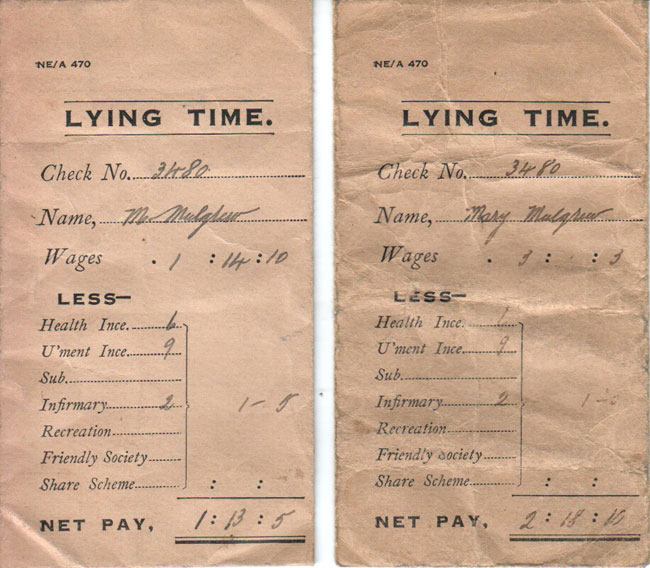 NE/A 470
LYING TIME.
Check No. 3480
Name, M. Mulgrew
Wages . 1 : 14 : 10
LESS—
Health Ince. 6
U'ment Ince. 9
Sub.
Infirmary 2 1 - 5
Recreation
Friendly Society
Share Scheme : :
NET PAY, 1 : 13 : 5
NE/A 470
LYING TIME.
Check No. 3480
Name, Mary Mulgrew
Wages . 3 : . : 3
LESS—
Health Ince.
U'ment Ince. 9
Sub.
Infirmary 2 1 -
Recreation
Friendly Society
Share Scheme : :
NET PAY, 2 : 18 : 10